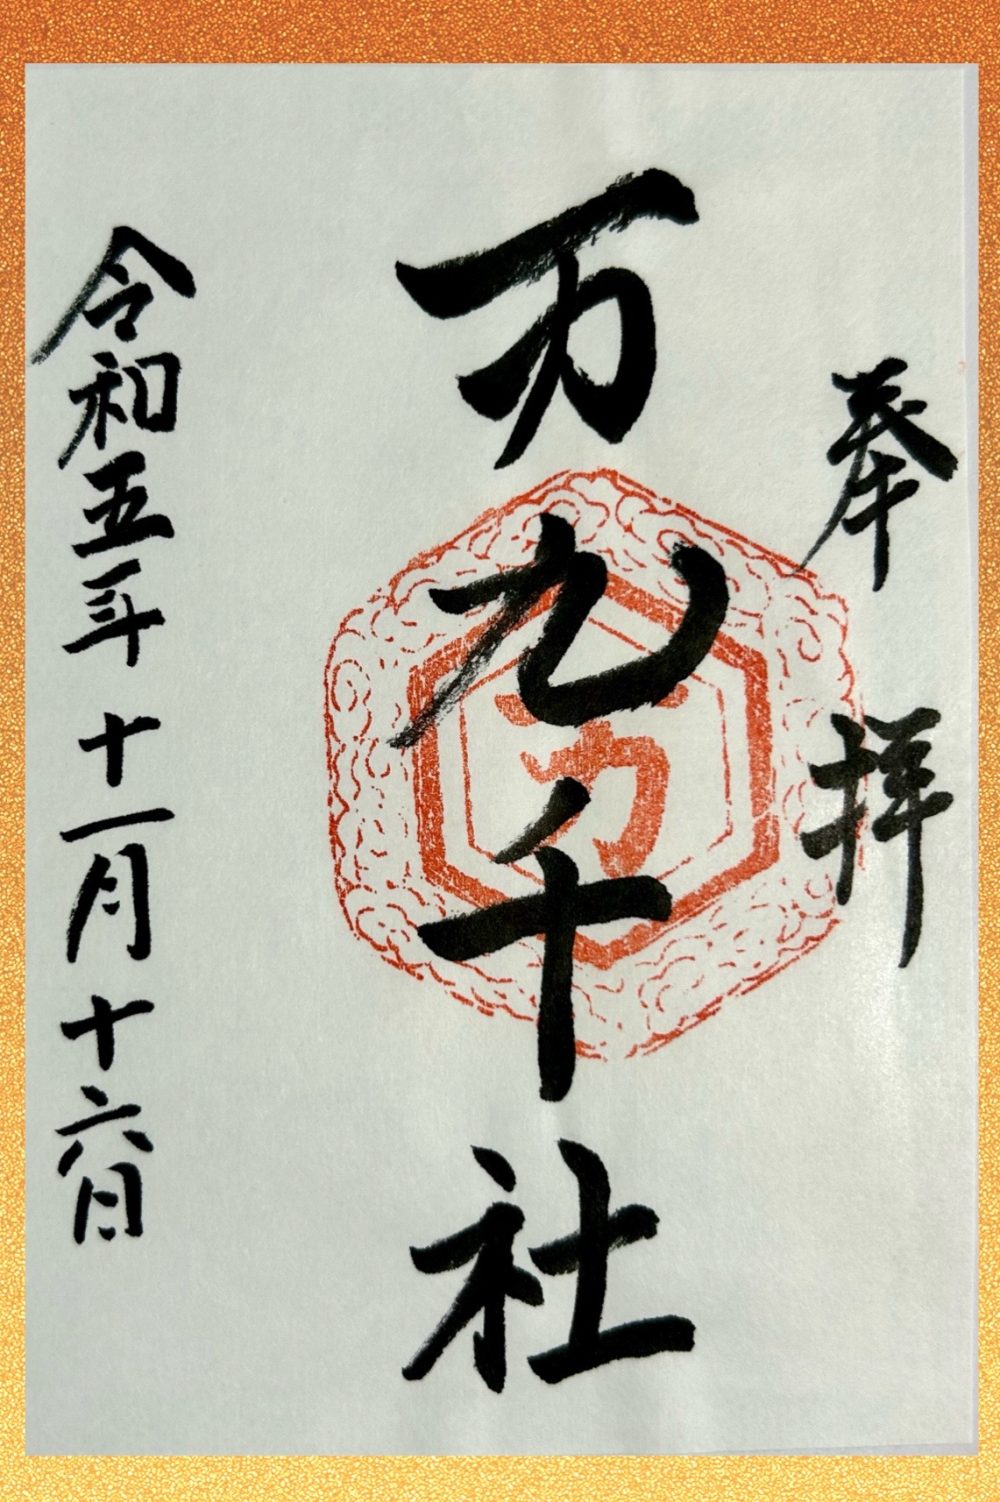 奉拝
万九千社
万
令和五年十一月十六日